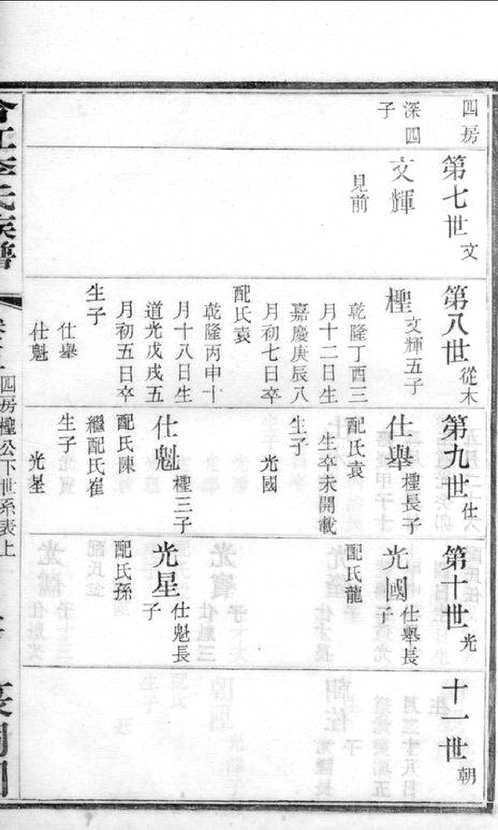 四房
深四
子
第七世 文
文輝
見前
第八世 從木
檉 文輝五子
乾隆丁酉三
月十二日生
嘉慶庚辰八
月初七日卒
配氏袁
乾隆丙申十
月十八日生
道光戊戌五
月初五日卒
生子
仕舉
仕魁
第九世 仕
仕舉 檉長子
配氏袁
生卒未開載
生子
光國
仕魁 檉三子
配氏陳
繼配氏崔
生子
光星
第十世 光
光國 仕舉長
子
配氏龍
光星 仕魁長
子
配氏孫
十一世 朝
李氏族譜
四房檉公下世系表上